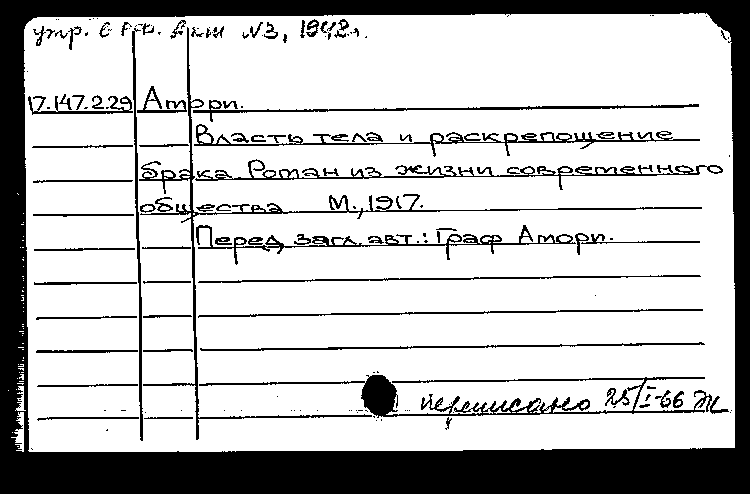 утр. в РФ. Акт №3, 1942г.
17.147.2.29 Амори.
Власть тела и раскрепощение
брака Роман из жизни современного
общества М., 1917.
Перед загл. авт.: Граф Амори.
переписано 25/I-66 Ж